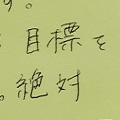 す。
目標を
。絶対